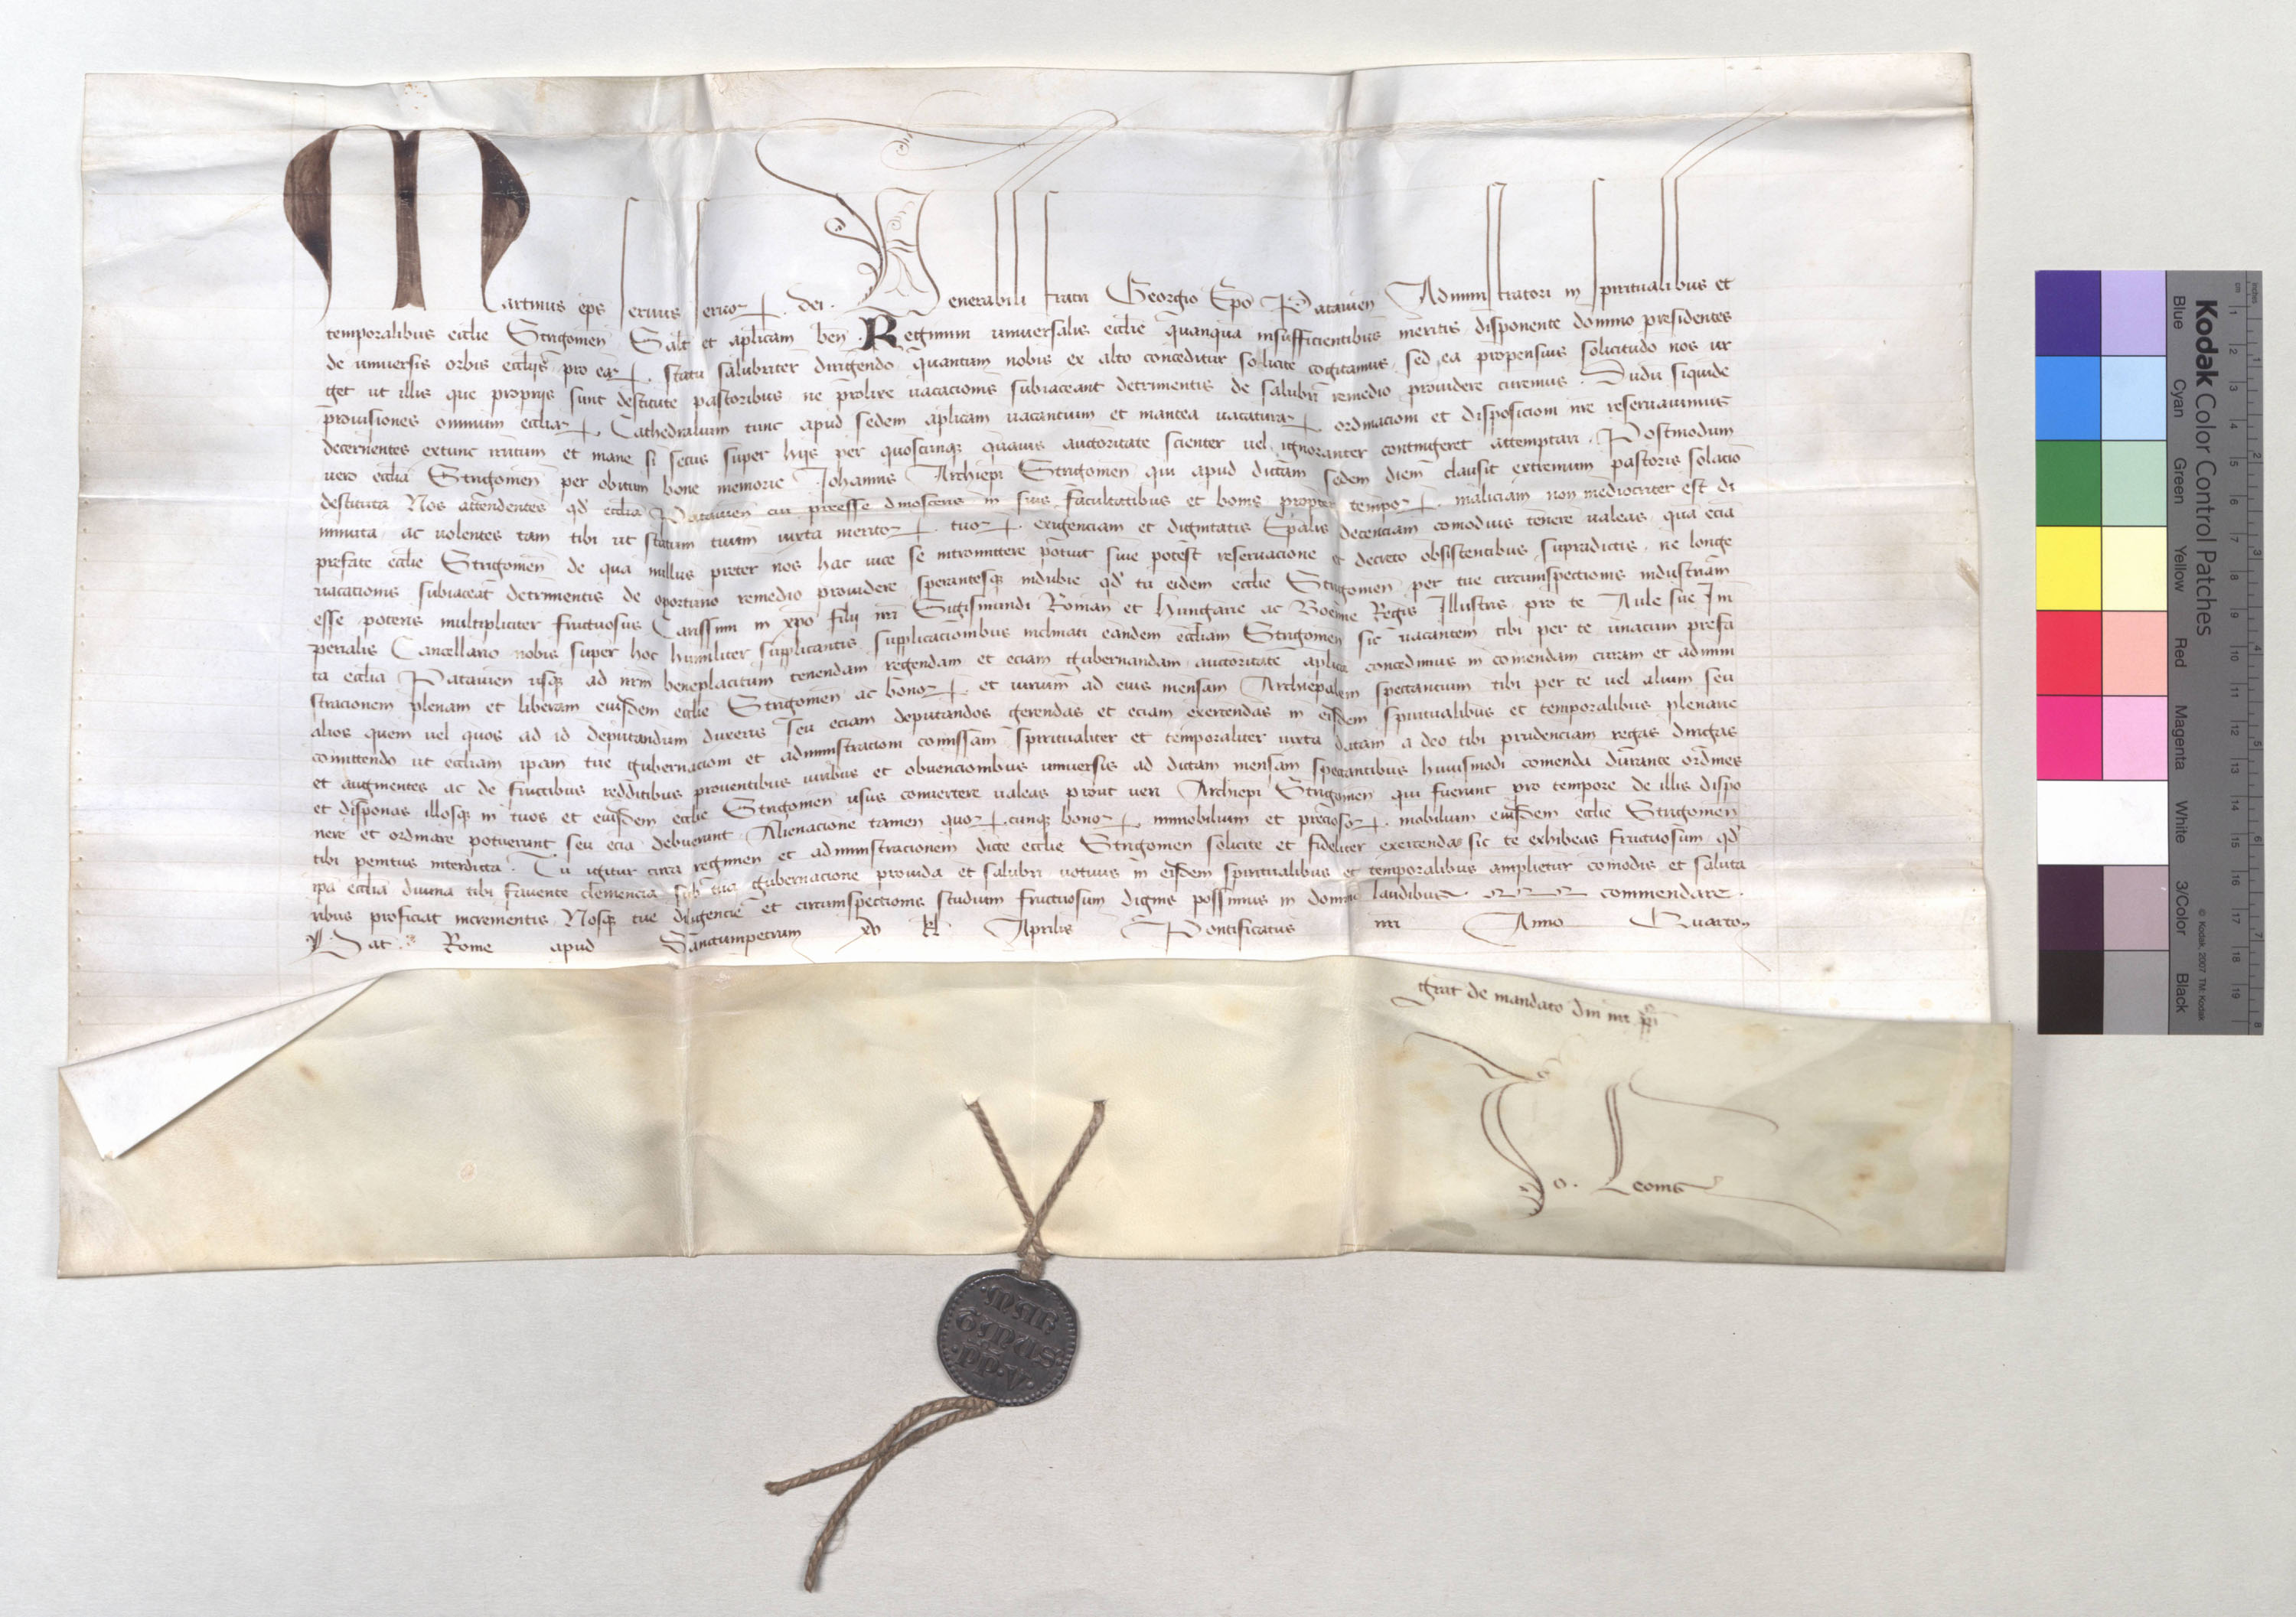 Martinus eps servus servor dei Venerabili fratri Georgio Epo Patavien Administratori in spiritualibus et
temporalibus ecclie Strigonien Salt et aplicam ben Regimini universalis ecclie quanqua insufficientibus meritis disponente domino presidentes
de universis orbis ecclijs pro ear statu salubriter dirigendo quantum nobis ex alto conceditur sollicite cogitamus sed ea propensius solicitudo nos ur
get ut illis que proprijs sunt destitute pastoribus ne prolixe vacacionis subiaceant detrimentis de salubri remedio providere curemus Dudu siquide
provisiones omnium ecclar Cathedralium tunc apud sedem aplicam vacantium et inantea vacaturar ordinacioni et disposicioni nre reservavimus
decernentes extunc irritum et inane si secus super hijs per quoscunq quavis auctoritate scienter vel ignoranter contingeret attemptari Postmodum
vero ecclia Strigonien per obitum bone memorie Johannis Archiepi Strigonien qui apud dictam sedem diem clausit extremum pastoris solacio
destituta Nos attendentes qd ecclia Patavien cui preesse dinosceris in suis facultatibus et bonis propter tempor maliciam non mediocriter est di
minuta ac volentes tam tibi ut statum tuum iuxta meritor tuor exigenciam et dignitatis Epalis decenciam comodius tenere valeas qua ecia
prefate ecclie Strigonien de qua nullus preter nos hac vice se intromittere potuit sive potest reservacione et decreto obsistentibus supradictis ne longe
vacacionis subiaceat detrimentis de oportuno remedio providere sperantesq indubie qd tu eidem ecclie Strigonien per tue circumspectionis industriam
esse poteris multipliciter fructuosus Carissimi in xpo filij nri Sigismundi Roman et Hungarie ac Boemie Regis Illustris pro te Aule sue Im
perialis Cancellario nobis super hoc humiliter supplicantis supplicacionibus inclinati eandem eccliam Strigonien sic vacantem tibi per te unacum prefa
ta ecclia Patavien usq ad nrm beneplacitum tenendam regendam et eciam gubernandam auctoritate aplica concedimus in comendam curam et admini
stracionem plenam et liberam eiusdem ecclie Strigonien ac bonor et iurium ad eius mensam Archiepalem spectantium tibi per te vel alium seu
alios quem vel quos ad id deputandum duxeris seu eciam deputandos gerendas et eciam exercendas in eisdem spiritualibus et temporalibus plenarie
comittendo ut eccliam ipam tue gubernacioni et administracioni comissam spiritualiter et temporaliter iuxta datam a deo tibi prudenciam regas dirigas
et augmentes ac de fructibus redditibus proventibus iuribus et obvencionibus universis ad dictam mensam spectantibus huiusmodi comenda durante ordines
et disponas illosq in tuos et eiusdem ecclie Strigonien usus convertere valeas prout veri Archiepi Strigonien qui fuerunt pro tempore de illis dispo
nere et ordinare potuerunt seu ecia debuerunt Alienacione tamen quorcunq bonor immobilium et preciosor mobilium eiusdem ecclie Strigonien
tibi penitus interdicta Tu igitur circa regimen et administracionem dicte ecclie Strigonien solicite et fideliter exercenda sic te exhibeas fructuosum qd
ipa ecclia divina tibi favente clemencia sub tua gubernacione provida et salubri votivis in eisdem spiritualibus et temporalibus amplietur comodis et saluta
ribus proficiat incrementis Nosq tue diligencie et circumspectionis studium fructuosum dignis possimus in domino laudibus commendare
Dat Rome apud Sanctumpetrum xv kl Aprilis Pontificatus nri Anno Quarto
Grat de mandato dni nri pp
Jo. Leonis
MAR
TINUS
PP V
Kodak Color Control Patches
Blue Cyan Green Yellow Red Magenta White 3/Color Black
© Kodak, 2007 TM: Kodak